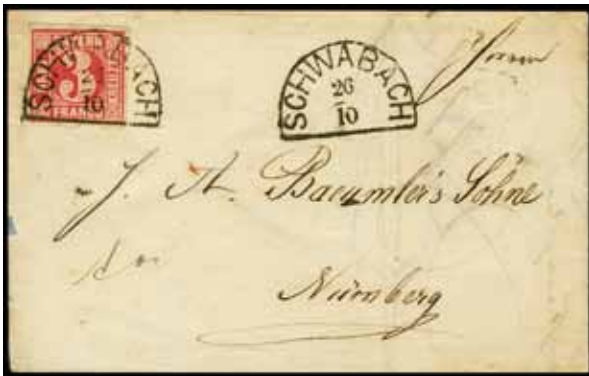 SCHWABACH
26
10
3
FRANCO
SCHWABACH
26
10
Herrn
J. A. Baeumler's Söhne
Nürnberg